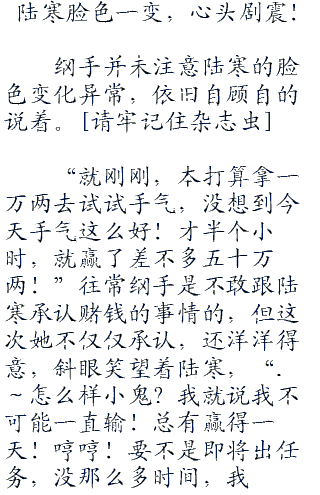 陆寒脸色一变，心头剧震！
纲手并未注意陆寒的脸
色变化异常，依旧自顾自的
说着。[请牢记住杂志虫]
“就刚刚，本打算拿一
万两去试试手气，没想到今
天手气这么好！才半个小
时，就赢了差不多五十万
两！”往常纲手是不敢跟陆
寒承认赌钱的事情的，但这
次她不仅仅承认，还洋洋得
意，斜眼笑望着陆寒，“.
~怎么样小鬼？我就说我不
可能一直输！总有赢得一
天！哼哼！要不是即将出任
务，没那么多时间，我